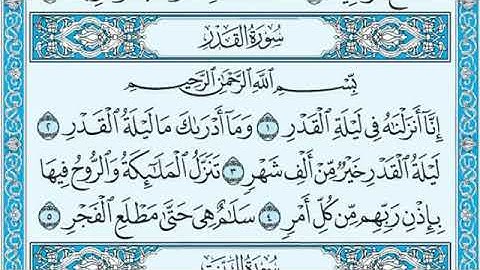 سُورَةُ القَدْرِ
بِسْمِ اللَّهِ الرَّحْمَٰنِ الرَّحِيمِ
إِنَّا أَنزَلْنَٰهُ فِي لَيْلَةِ الْقَدْرِ ١ وَمَا أَدْرَىٰكَ مَا لَيْلَةُ الْقَدْرِ ٢
لَيْلَةُ الْقَدْرِ خَيْرٌ مِّنْ أَلْفِ شَهْرٍ ٣ تَنَزَّلُ الْمَلَٰٓئِكَةُ وَالرُّوحُ فِيهَا
بِإِذْنِ رَبِّهِم مِّن كُلِّ أَمْرٍ ٤ سَلَٰمٌ هِيَ حَتَّىٰ مَطْلَعِ الْفَجْرِ ٥